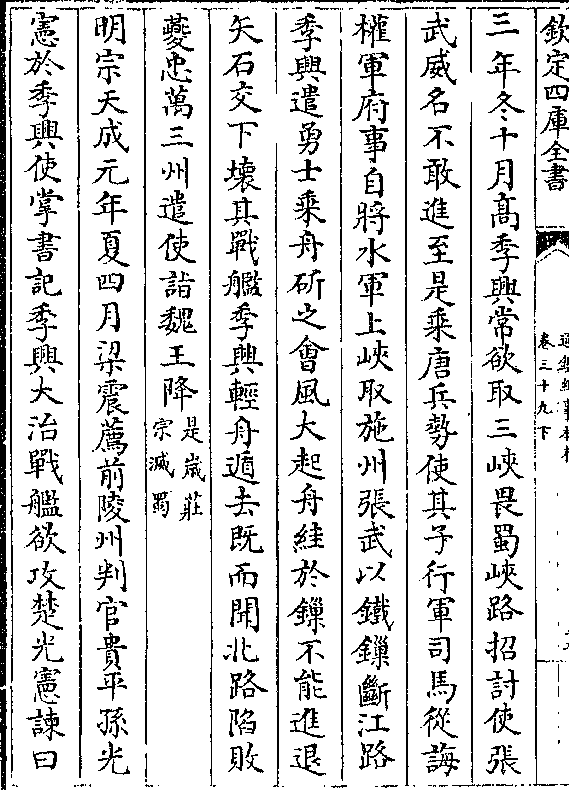 欽定四庫全書
卷三十九下
三年冬十月髙季興常欲取三峽畏蜀峽路招討使張
武威名不敢進至是乘唐兵勢使其子行軍司馬從誨
權軍府事自將水軍上峽取施州張武以鐵鏁斷江路
季興遣勇士乘舟斫之會風大起舟絓於鏁不能進退
矢石交下壞其戰艦季興輕舟遁去既而聞北路陷敗
夔忠萬三州遣使詣魏王降是歲莊宗滅蜀
明宗天成元年夏四月梁震薦前陵州判官貴平孫光
憲於季興使掌書記季興大治戰艦欲攻楚光憲諫曰